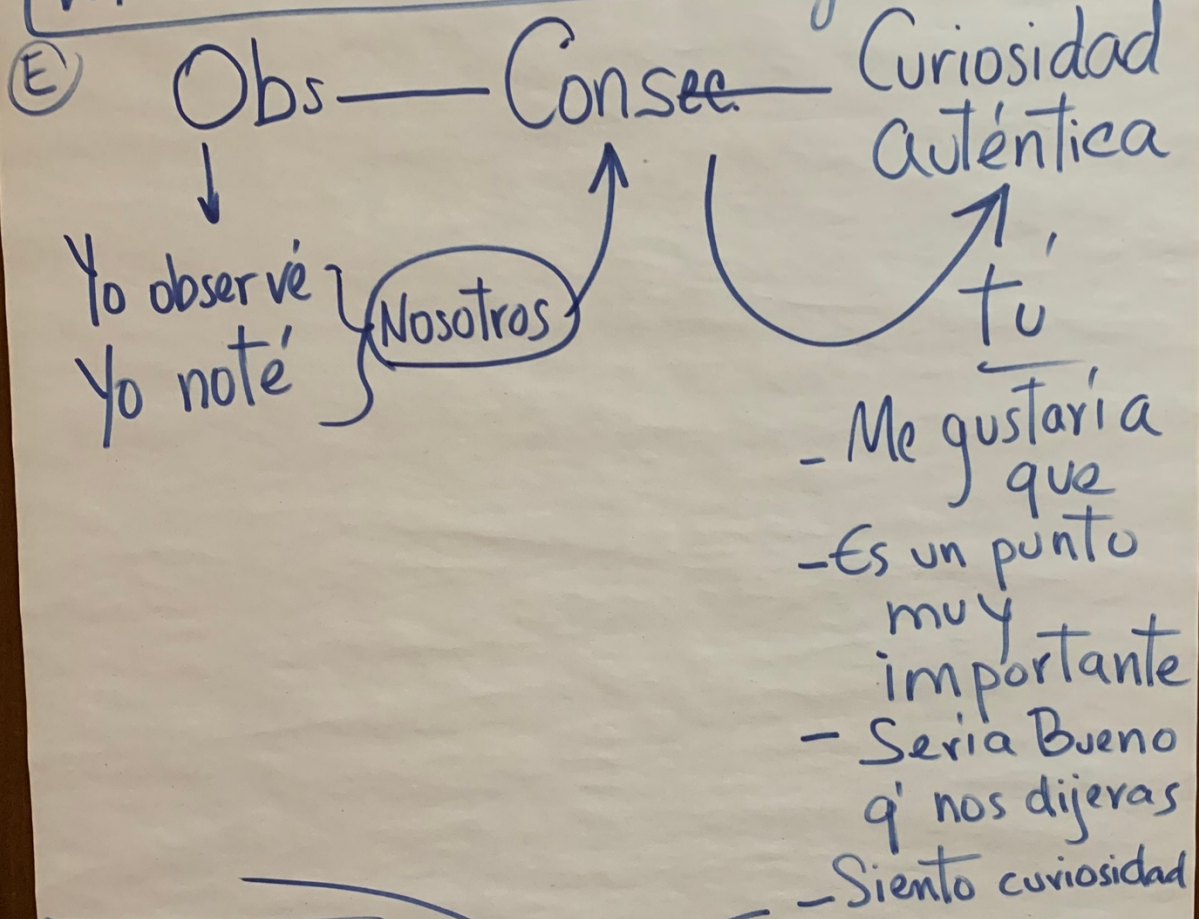 E
Obs — Consec. — Curiosidad
auténtica
Yo observé
Yo noté
Nosotros
tú
- Me gustaría
que
- Es un punto
muy
importante
- Seria Bueno
q' nos dijeras
- Siento curiosidad